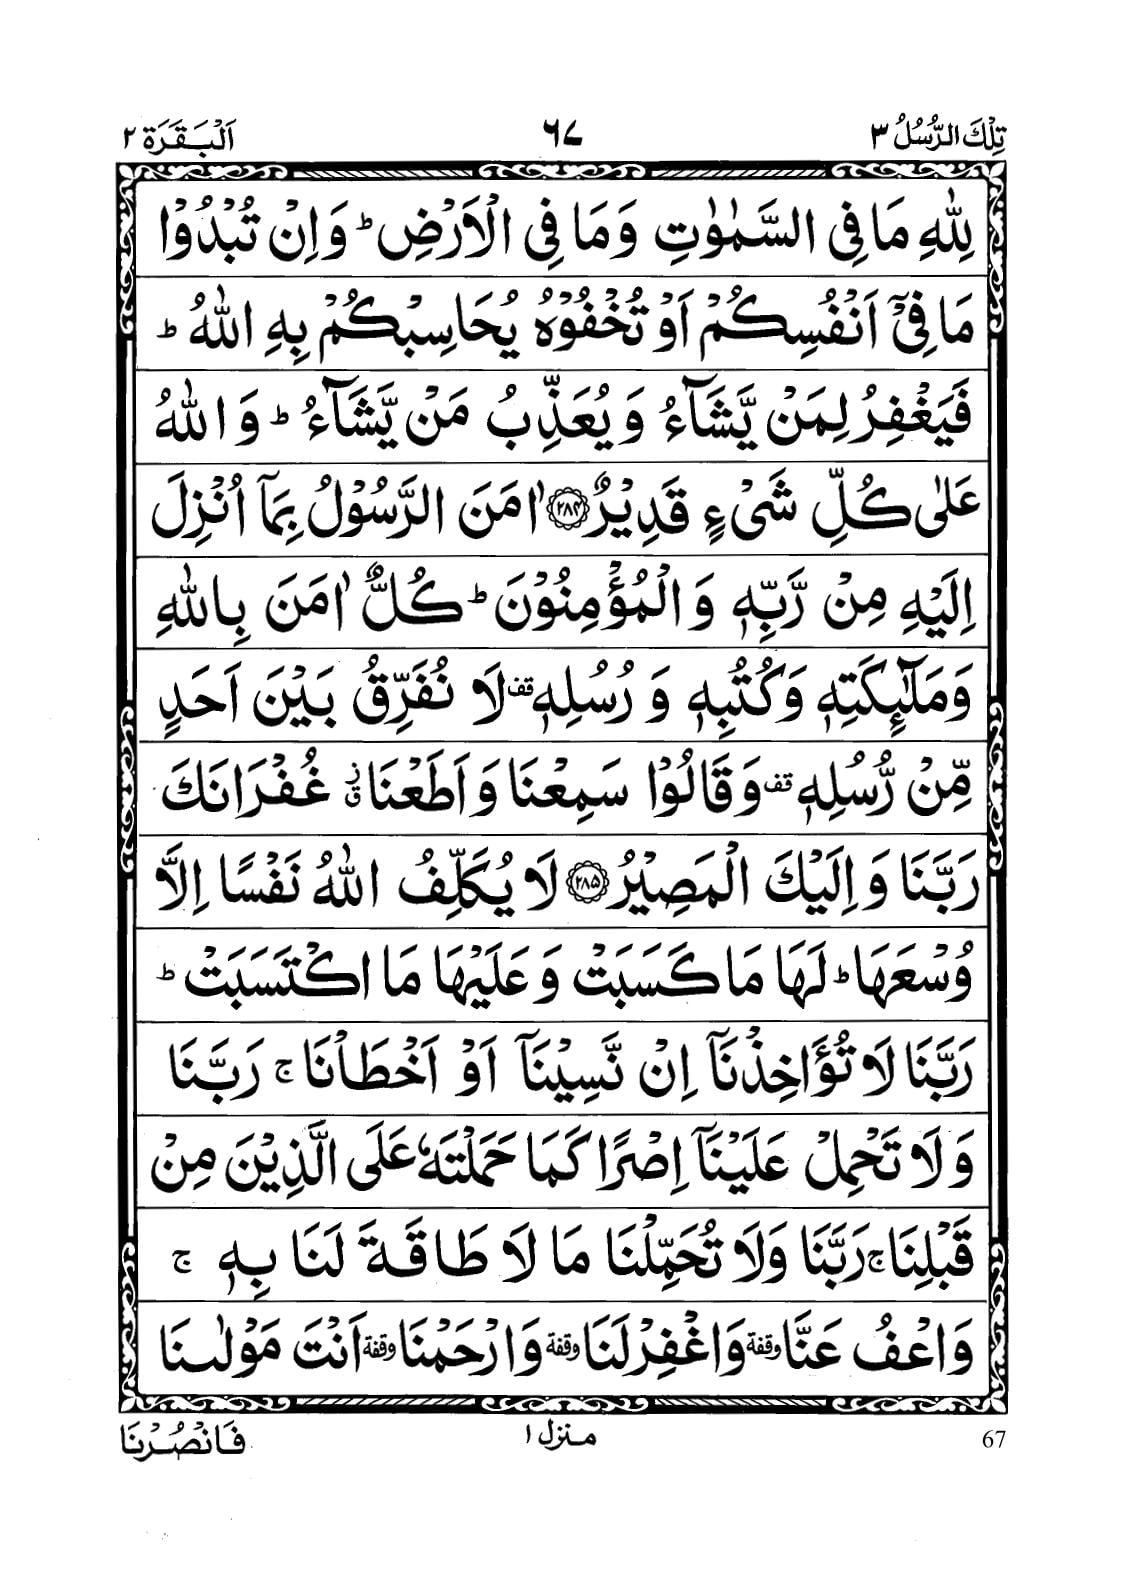 تِلْكَ الرُّسُلُ ٣
٦٧
اَلْبَقَرَة ٢
لِلّٰهِ مَا فِى السَّمٰوٰتِ وَمَا فِى الْاَرْضِ ؕ وَاِنْ تُبْدُوْا
مَا فِىْۤ اَنْفُسِكُمْ اَوْ تُخْفُوْهُ يُحَاسِبْكُمْ بِهِ اللّٰهُ ؕ
فَيَغْفِرُ لِمَنْ يَّشَآءُ وَيُعَذِّبُ مَنْ يَّشَآءُ ؕ وَاللّٰهُ
عَلٰى كُلِّ شَىْءٍ قَدِيْرٌ ﴿۲۸۴﴾ اٰمَنَ الرَّسُوْلُ بِمَاۤ اُنْزِلَ
اِلَيْهِ مِنْ رَّبِّهٖ وَالْمُؤْمِنُوْنَ ؕ كُلٌّ اٰمَنَ بِاللّٰهِ
وَمَلٰٓئِكَتِهٖ وَكُتُبِهٖ وَرُسُلِهٖ قف لَا نُفَرِّقُ بَيْنَ اَحَدٍ
مِّنْ رُّسُلِهٖ قف وَقَالُوْا سَمِعْنَا وَاَطَعْنَا ق ز غُفْرَانَكَ
رَبَّنَا وَاِلَيْكَ الْمَصِيْرُ ﴿۲۸۵﴾ لَا يُكَلِّفُ اللّٰهُ نَفْسًا اِلَّا
وُسْعَهَا ؕ لَهَا مَا كَسَبَتْ وَعَلَيْهَا مَا اكْتَسَبَتْ ؕ
رَبَّنَا لَا تُؤَاخِذْنَاۤ اِنْ نَّسِيْنَاۤ اَوْ اَخْطَاْنَا ج رَبَّنَا
وَلَا تَحْمِلْ عَلَيْنَاۤ اِصْرًا كَمَا حَمَلْتَهٗ عَلَى الَّذِيْنَ مِنْ
قَبْلِنَا ج رَبَّنَا وَلَا تُحَمِّلْنَا مَا لَا طَاقَةَ لَنَا بِهٖ ج
وَاعْفُ عَنَّا وقفة وَاغْفِرْ لَنَا وقفة وَارْحَمْنَا وقفة اَنْتَ مَوْلٰىنَا
67
منزل ١
فَانْصُرْنَا